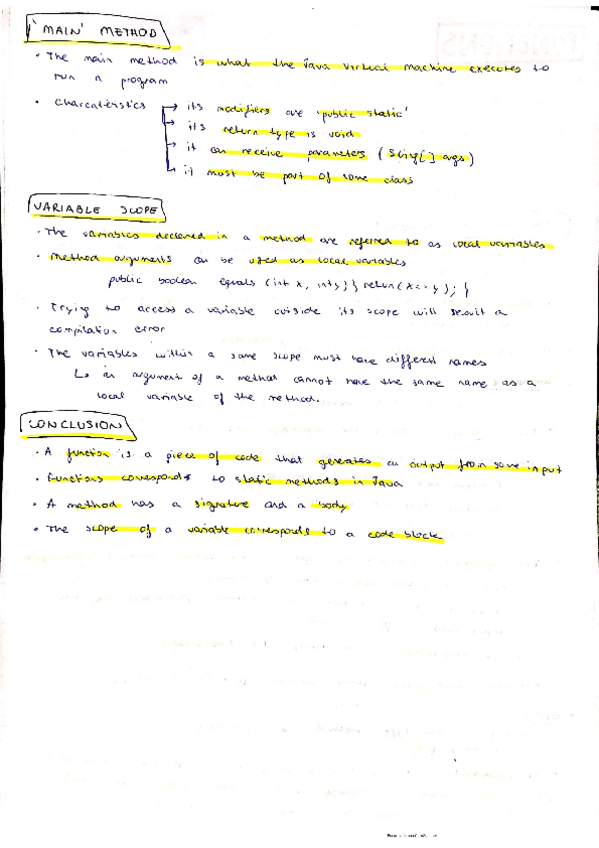 'MAIN' METHOD
· The main method is what the Java Virtual Machine executes to
run a program
· Charcateristics → its modifiers are 'public static'
→ its return type is void
→ it can receive parameters (String[] args)
→ it must be part of some class
VARIABLE SCOPE
· The variables declared in a method are referred to as local variables
· Method arguments can be used as local variables
public boolean equals (int x, int y) } return (x == y); {
· Trying to access a variable outside its scope will result a
compilation error
· The variables within a same scope must have different names
↳ an argument of a method cannot have the same name as a
local variable of the method.
CONCLUSION
· A function is a piece of code that generates an output from some input
· Functions corresponds to static methods in Java
· A method has a signature and a body
· The scope of a variable corresponds to a code block